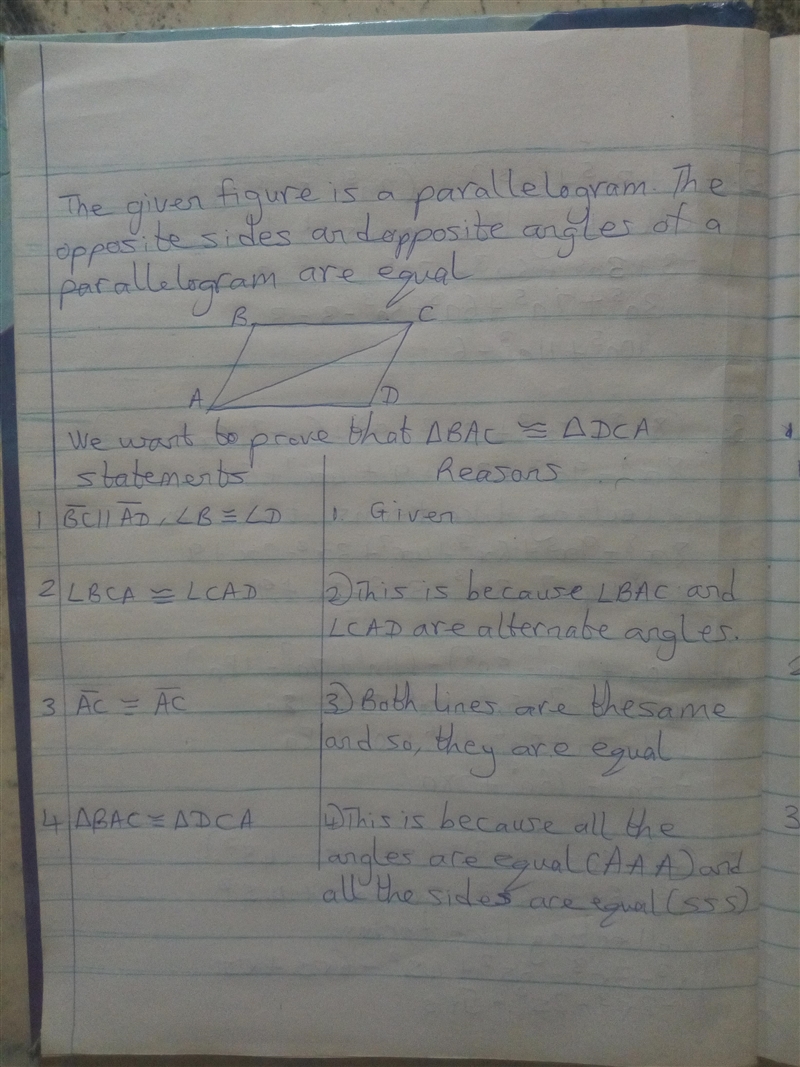 The given figure is a parallelogram. The
opposite sides and opposite angles of a
parallelogram are equal
B C
A D
We want to prove that ΔBAC ≅ ΔDCA
statements Reasons
1 B̅C̅ || A̅D̅, ∠B ≅ ∠D 1. Given
2 ∠BCA ≅ ∠CAD 2) This is because ∠BAC and
∠CAD are alternate angles.
3 A̅C̅ ≅ A̅C̅ 3) Both lines are thesame
and so, they are equal
4 ΔBAC ≅ ΔDCA 4) This is because all the
angles are equal (AAA) and
all the sides are equal (SSS)
1
2
3